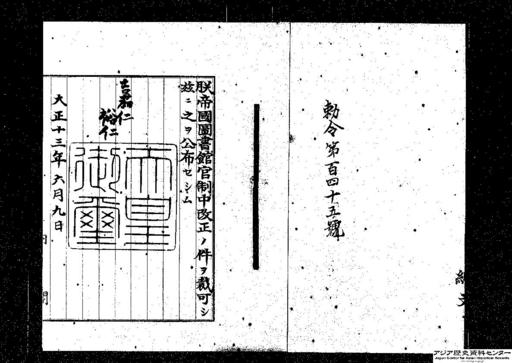 勅令第百四十五號
朕帝國圖書館官制中改正ノ件ヲ裁可シ
玆ニ之ヲ公布セシム
嘉仁
裕仁
天皇御璽
大正十三年六月九日
アジア歴史資料センター
Japan Center for Asian Historical Records